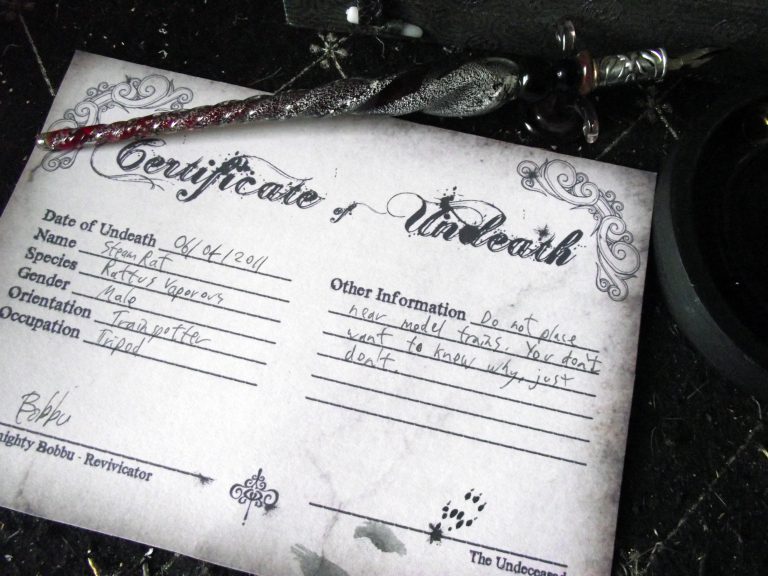 Certificate of Undeath
Date of Undeath 06/06/2011
Name SteamRat
Species Rattus Vaporous
Gender Male
Orientation Trainspotter
Occupation Tripod
Other Information Do not place
near model trains. You don't
want to know why, just
don't.
Bobbu
mighty Bobbu - Revivicator
The Undeceased